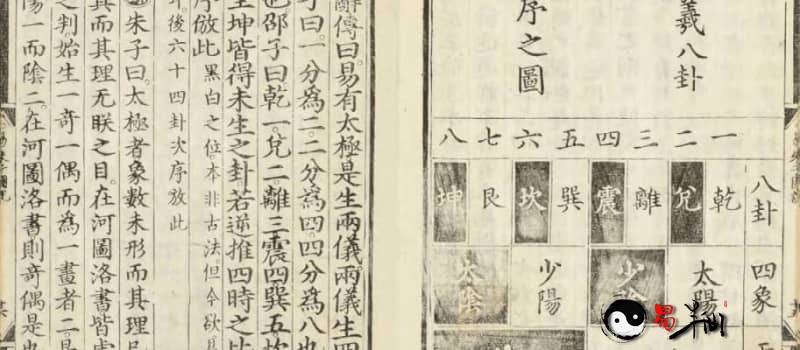 羲八卦
序之圖
一二三四五六七八
八卦
乾兌離震巽坎艮坤
四象
太陽少陰少陽太陰
辭傳曰易有太極是生兩儀兩儀生四
子曰一分爲二二分爲四四分爲八也
也邵子曰乾一兌二離三震四巽五坎
生坤皆得未生之卦若逆推四時之比
序倣此
黑白之位本非古法但今欲易
後六十四卦次序放此
朱子曰太極者象數未形而其理
具而其理无眹之目在河圖洛書皆虛
之判始生一奇一偶而爲一畫者二是
陽一而陰二在河圖洛書則奇偶是
易半仙